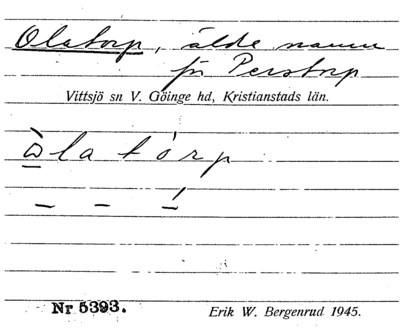 Olatorp, äldre namn
för Perstorp
Vittsjö sn V. Göinge hd, Kristianstads län.
ὰ̱la tȯrp
– – –́
Nr 5393. Erik W. Bergenrud 1945.